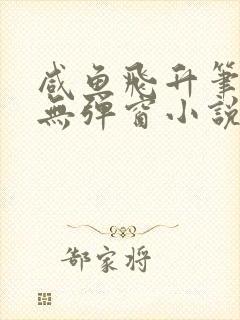 咸鱼飛升筆
無彈窗小說
郜家将